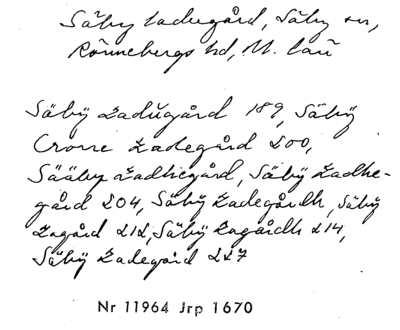 Säby Ladugård, Säby sn,
Rönnebergs hd, M. län
Säbÿ Ladŭgård 189, Säbÿ
Crono Ladegård 200,
Sääby Ladhegård, Säbÿ Ladhe-
gård 204, Säbÿ Ladegårdh, Säbÿ
Lagård 212, Säbÿ Lagårdh 214,
Säbÿ Ladegård 227
Nr 11964 Jrp 1670